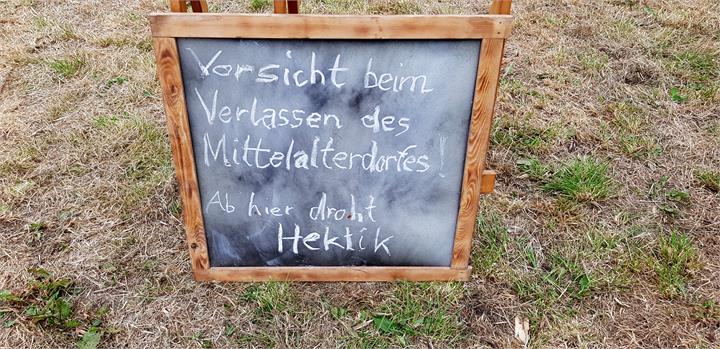 Vorsicht beim
Verlassen des
Mittelalterdorfes!
Ab hier droht
Hektik